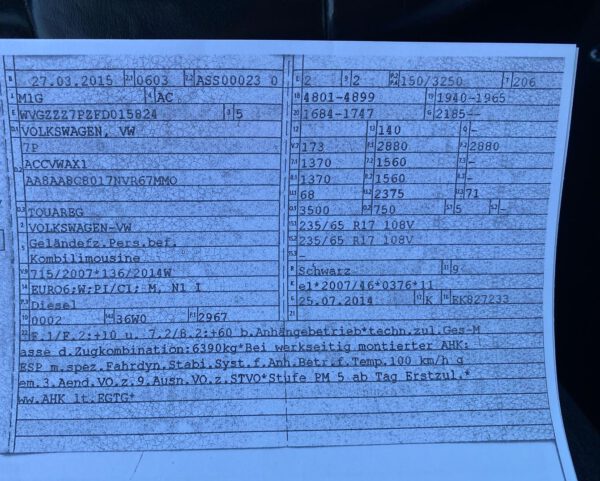 B 27.03.2015 2.1 0603 2.2 ASS00023 0
J M1G 4 AC
E WVGZZZ7PZFD015824 3 5
D.1 VOLKSWAGEN, VW
7P
D.2 ACCVWAX1
AA8AABC8017NVR67MMO
D.3 TOUAREG
2 VOLKSWAGEN-VW
5 Geländefz.Pers.bef.
Kombilimousine
V.9 715/2007*136/2014W
14 EURO6;W;PI/CI; M, N1 I
P.3 Diesel
10 0002 14.1 36W0 P.1 2967
L 2 9 2 P.2 P.4 150/3250 T 206
18 4801-4899 19 1940-1965
20 1684-1747 G 2185--
12 - 13 140 Q -
V.7 173 F.1 2880 F.2 2880
7.1 1370 7.2 1560 7.3 -
8.1 1370 8.2 1560 8.3 -
U.1 68 U.2 2375 U.3 71
O.1 3500 O.2 750 S.1 5 S.2 -
15.1 235/65 R17 108V
15.2 235/65 R17 108V
15.3 -
R Schwarz 11 9
K e1*2007/46*0376*11
6 25.07.2014 17 K 16 EK827233
21
22 F.1/F.2:+10 u. 7.2/8.2:+60 b.Anhängebetrieb*techn.zul.Ges-M
asse d.Zugkombination:6390kg*Bei werkseitig montierter AHK:
ESP m.spez.Fahrdyn.Stabi.Syst.f.Anh.Betr.f.Temp.100 km/h g
em.3.Aend.VO.z.9.Ausn.VO.z.STVO*Stufe PM 5 ab Tag Erstzul.*
ww.AHK lt.EGTG*